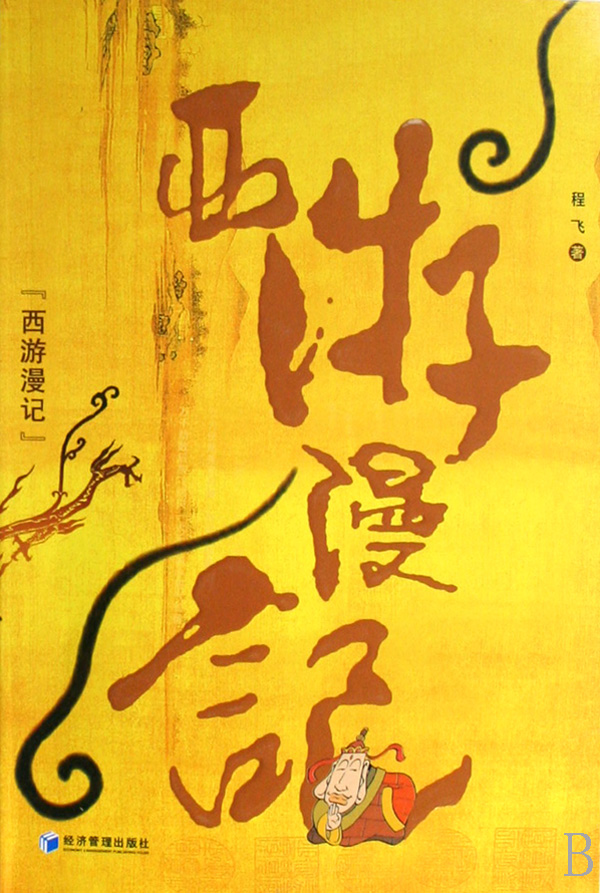 西游漫記
程飞 著
『西游漫记』
经济管理出版社
ECONOMY & MANAGEMENT PUBLISHING HOUSE
B